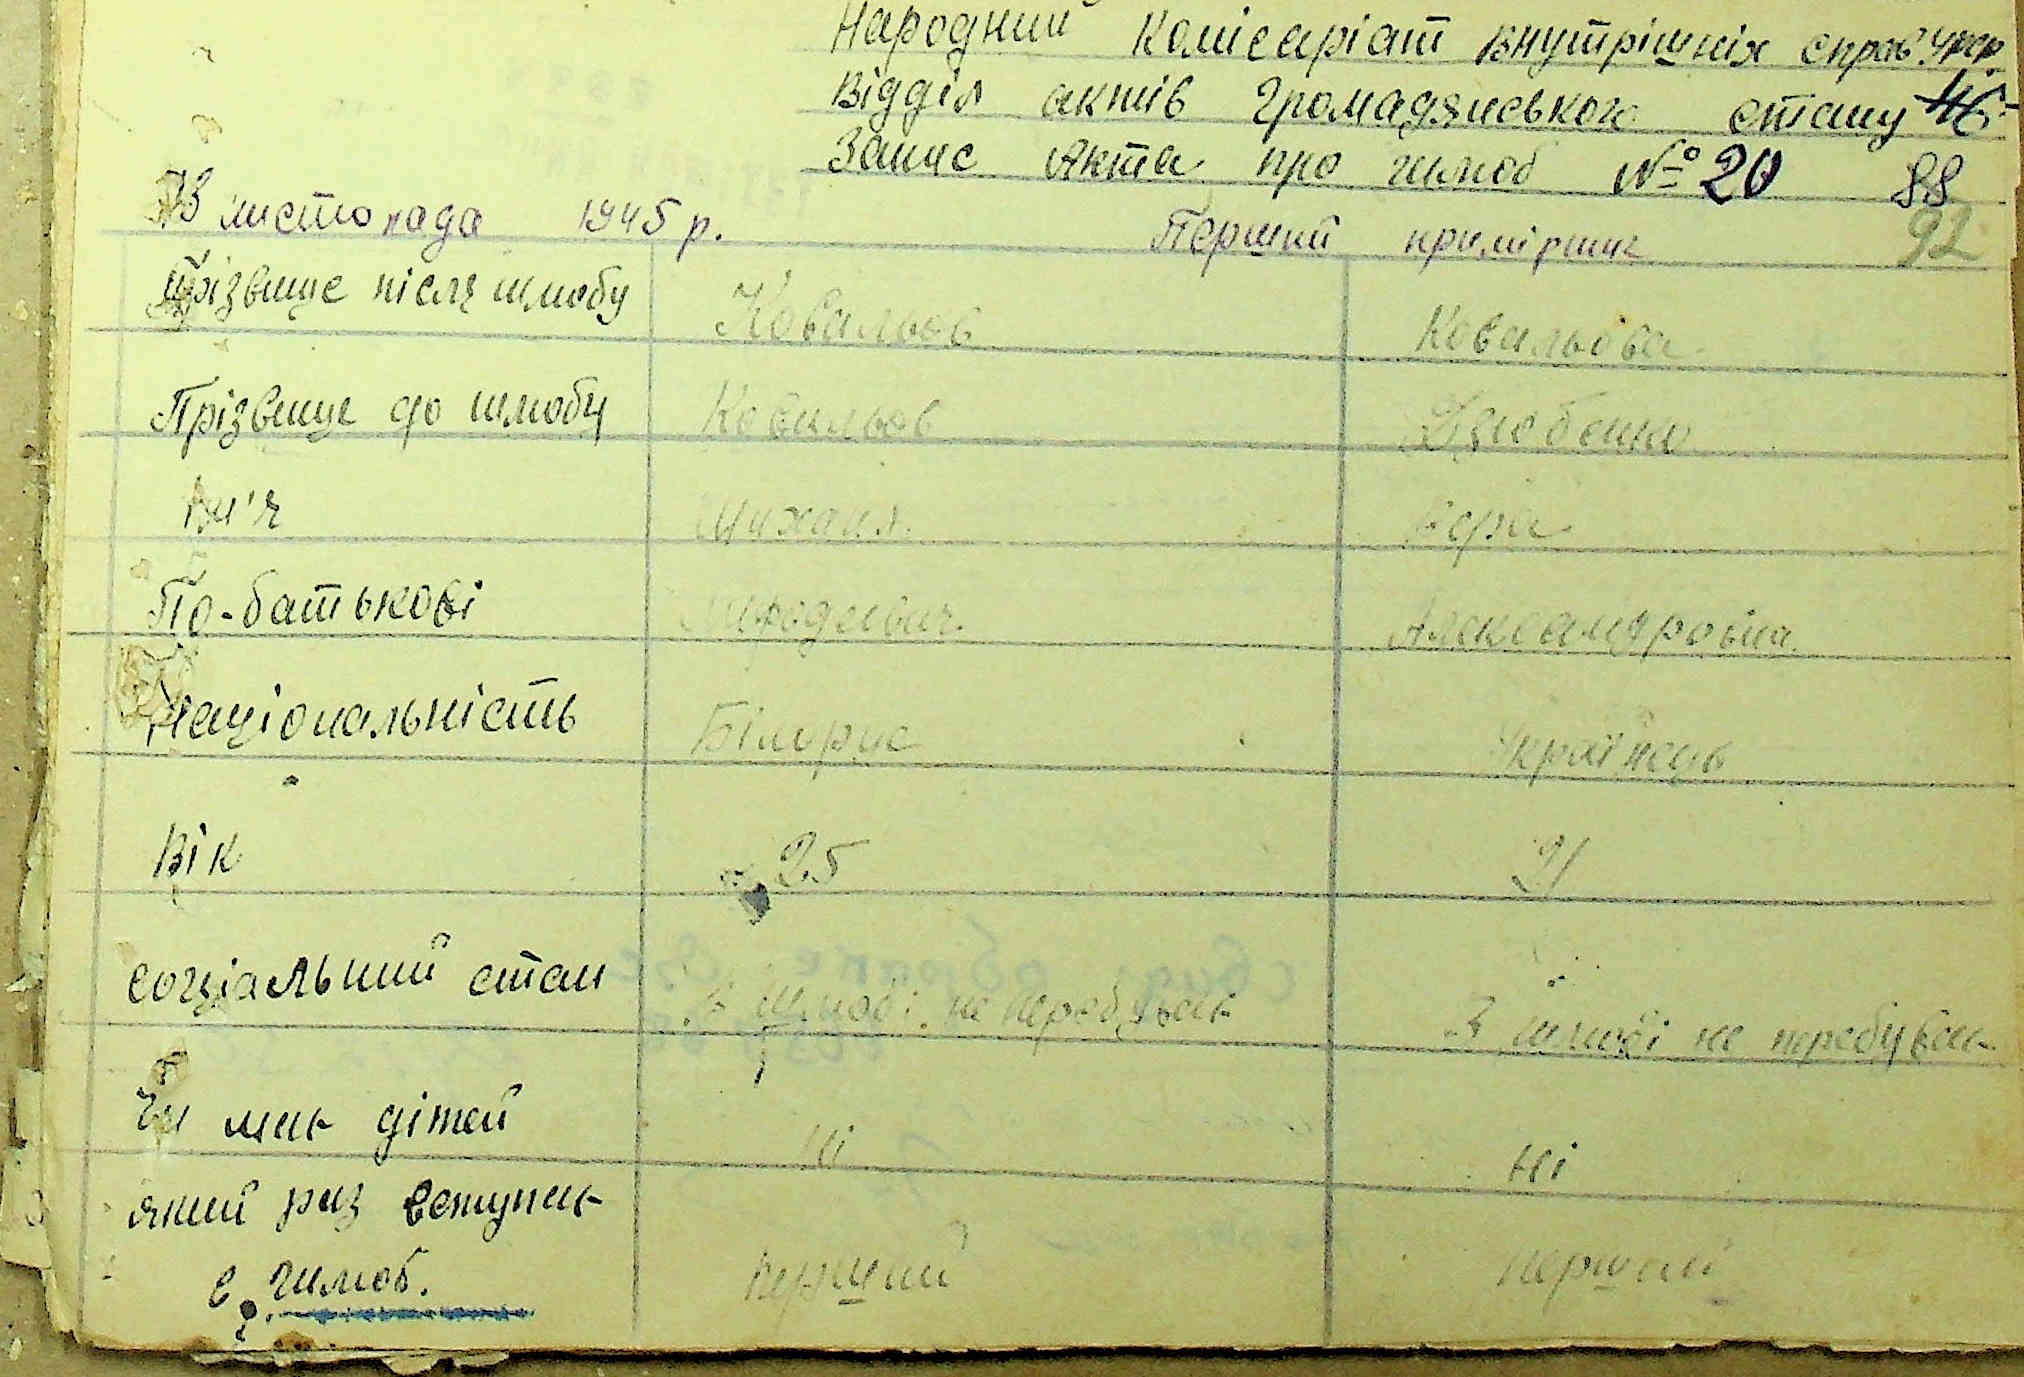 Народний Комісаріат внутрішніх справ УРСР
Відділ актів громадянського стану
Запис Акта про шлюб № 20 88
листопада 1945 р. Перший примірник 92
Прізвище після шлюбу Ковальов Ковальова
Прізвище до шлюбу Ковальов Дзюбенко
Ім'я Михаил Вера
По-батькові Александровна
Національність Білорус Українець
Вік 25 21
Соціальний стан В шлюбі не перебував В шлюбі не перебував
Чи має дітей Ні Ні
який раз вступає
в шлюб. перший перший